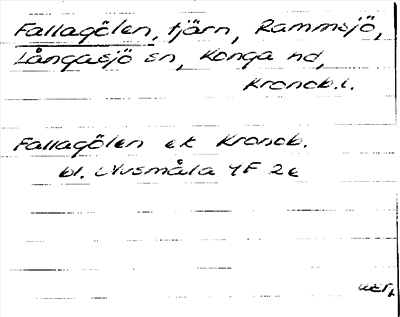 Fallagölen, tjärn, Rammsjö,
Långasjö sn, Konga hd,
Kronob.l.
Fallagölen ek Kronob.
bl. Älvsmåla 4F 2e